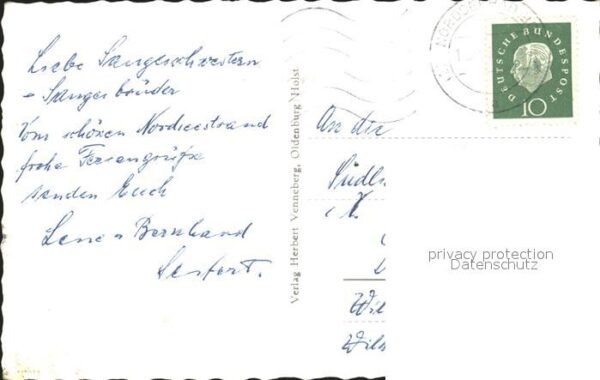 Liebe Sangesschwestern
- Sangesbrüder
Vom schönen Nordseestrand
frohe Feriengrüße
senden Euch
Lene u Bernhard
Verlag Herbert Venneberg, Oldenburg/Holst
DEUTSCHE BUNDESPOST
10
An die
privacy protection
Datenschutz